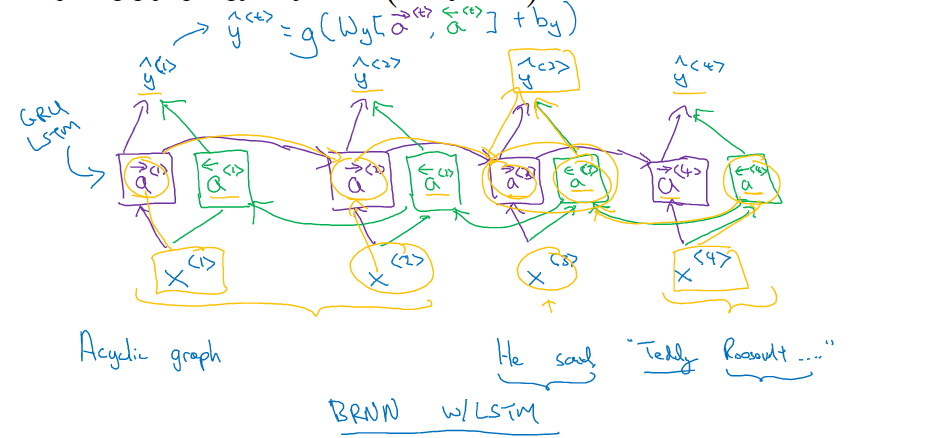 ŷ<t> = g(Wy[a→<t>, a←<t>] + by)
ŷ<1> ŷ<2> ŷ<3> ŷ<4>
GRU
LSTM
a→<1> a←<1> a→<2> a←<2> a→<3> a←<3> a→<4> a←<4>
x<1> x<2> x<3> x<4>
Acyclic graph
He said, "Teddy Roosevelt ...."
BRNN w/LSTM